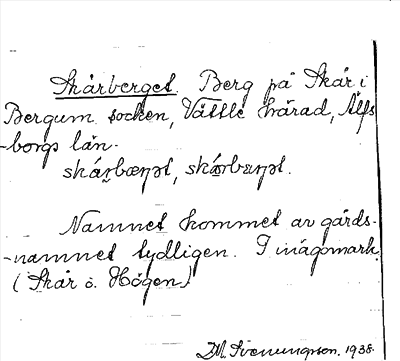 Skårberget. Berg på Skår i
Bergum socken, Vättle härad, Älfs-
-borgs län.
skårbærjət, skårbærjət.
Namnet kommet av gårds-
-namnet tydligen. I inägomark.
(Skår ö. Högen)
D. M. Svenungson. 1938.